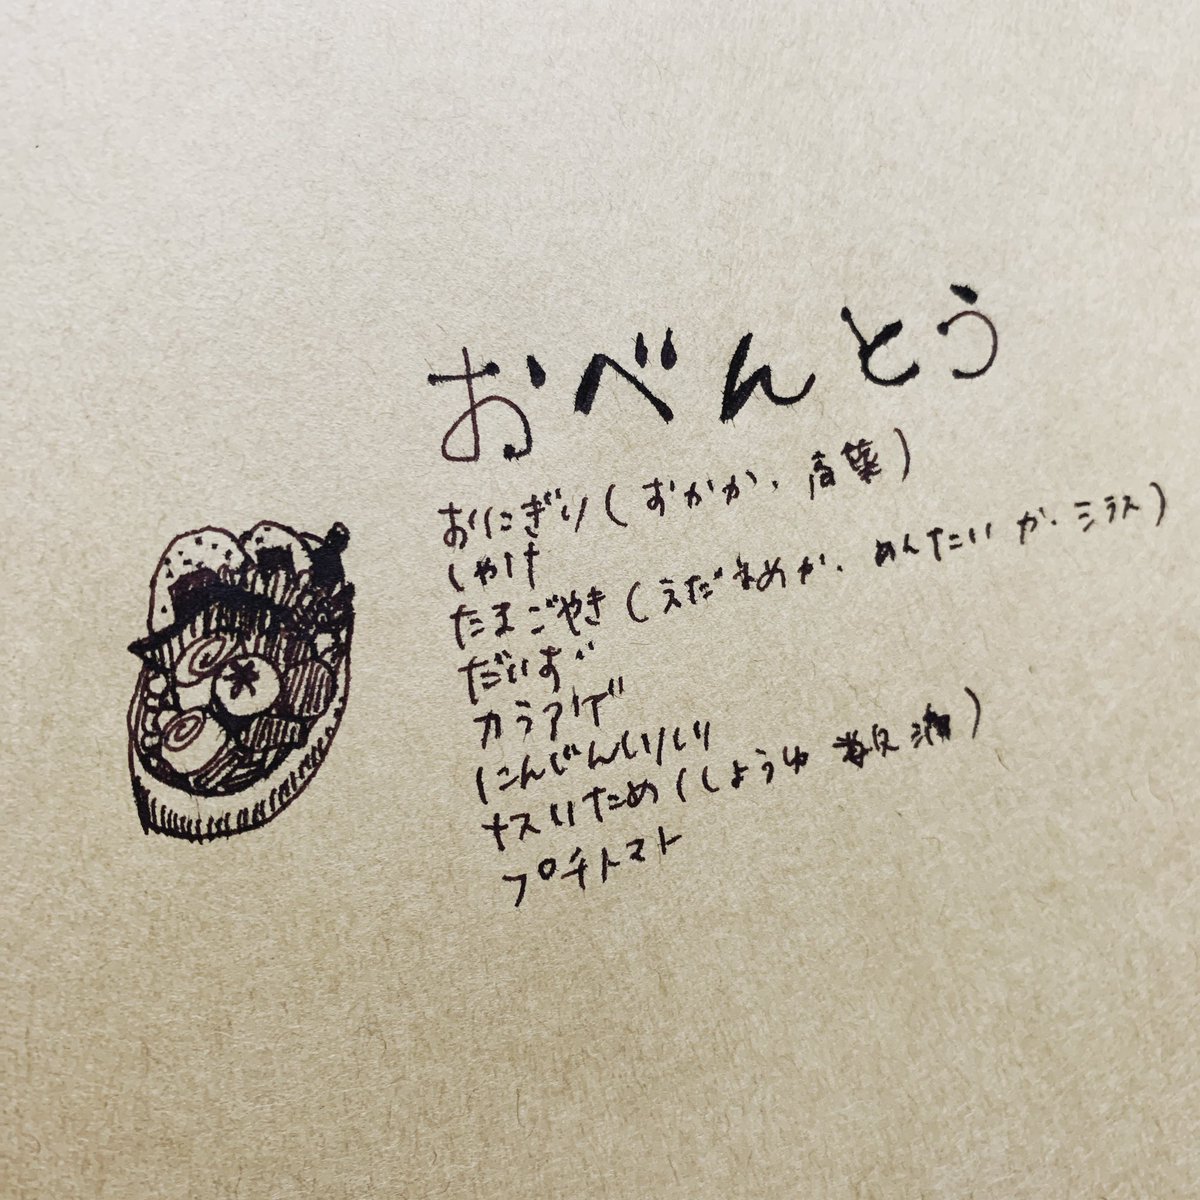 おべんとう
おにぎり(おかか、高菜)
しゃけ
たまごやき(えだまめか、めんたいか、シラス)
だいず
カラアゲ
にんじんしりしり
ナスいため(しょうゆ
プチトマト